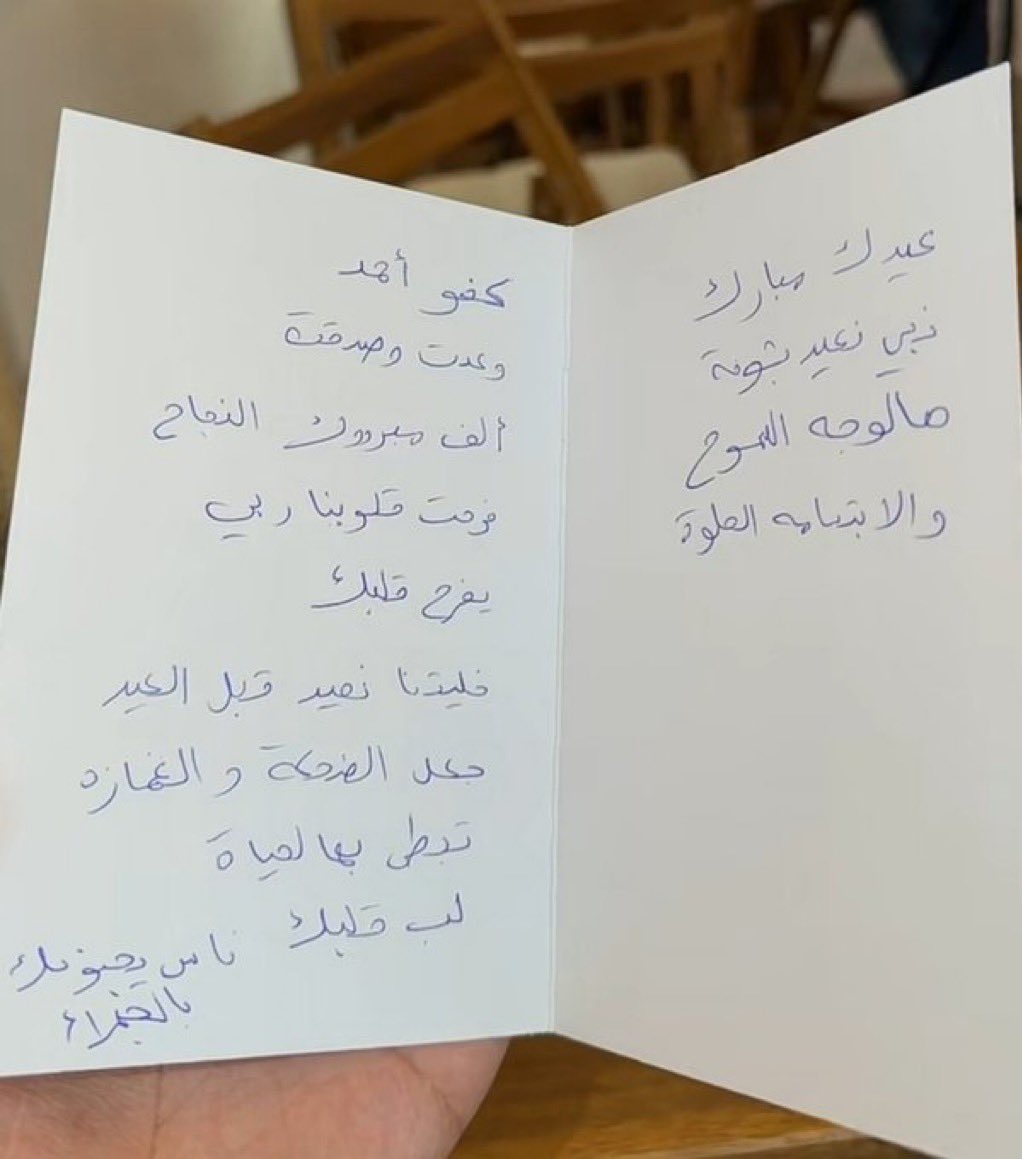 عيدك مبارك
نبي نعيد بشوفة
هالوجه السموح
والابتسامه الحلوة
كفو أحمد
وعدت وصدقت
ألف مبروووك النجاح
فرحت قلوبنا ربي
يفرح قلبك
خليتنا نعيد قبل العيد
جعل الضحكة و الغمازه
تبطى بهالحياة
لب قلبك
ناس يحبونك